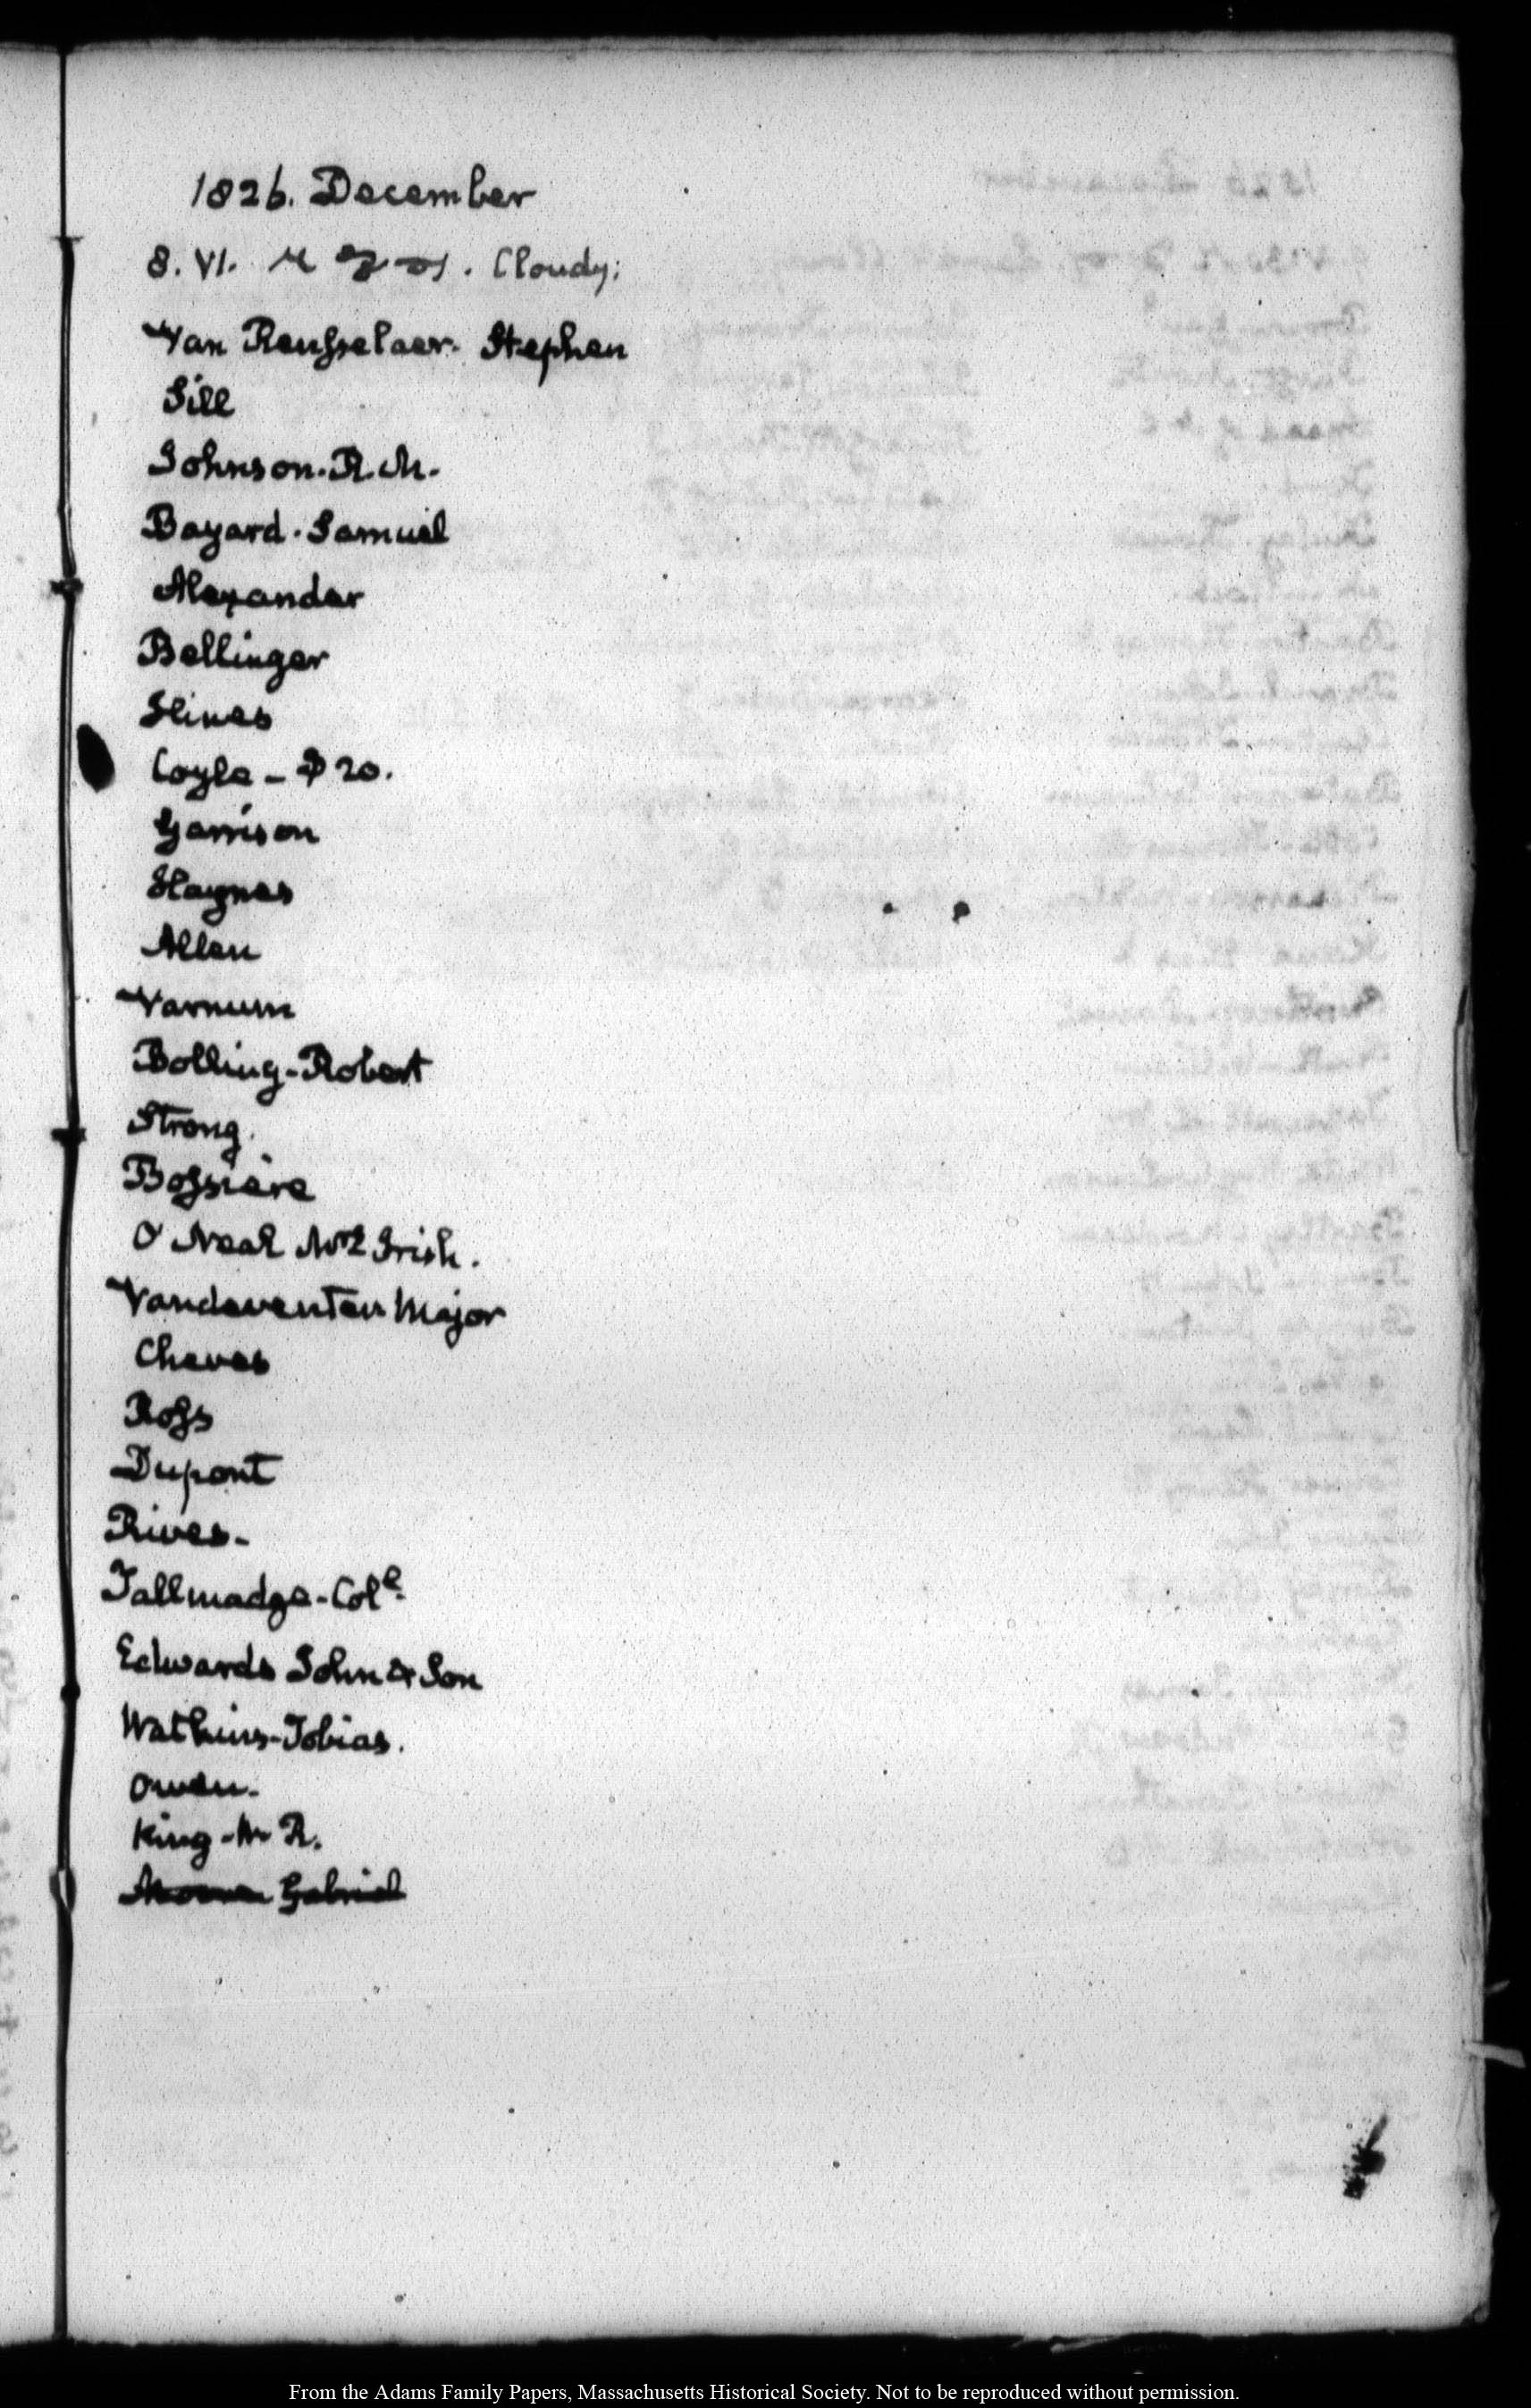 1826. December
8. VI. Cloudy;
Van Rensselaer. Stephen
Sill
Johnson. R. M.
Bayard. Samuel
Alexander
Bellinger
Hines
Coyle - $20.
Garrison
Haynes
Allen
Varnum
Bolling - Robert
Strong.
Bossiere
O Neal Irish.
Vandeventer Major
Cheves
Ross
Dupont
Rives -
Tallmadge - Col.
Edwards John & Son
Watkins - Tobias.
Owen -
King - W R.
Gabriel
From the Adams Family Papers, Massachusetts Historical Society. Not to be reproduced without permission.